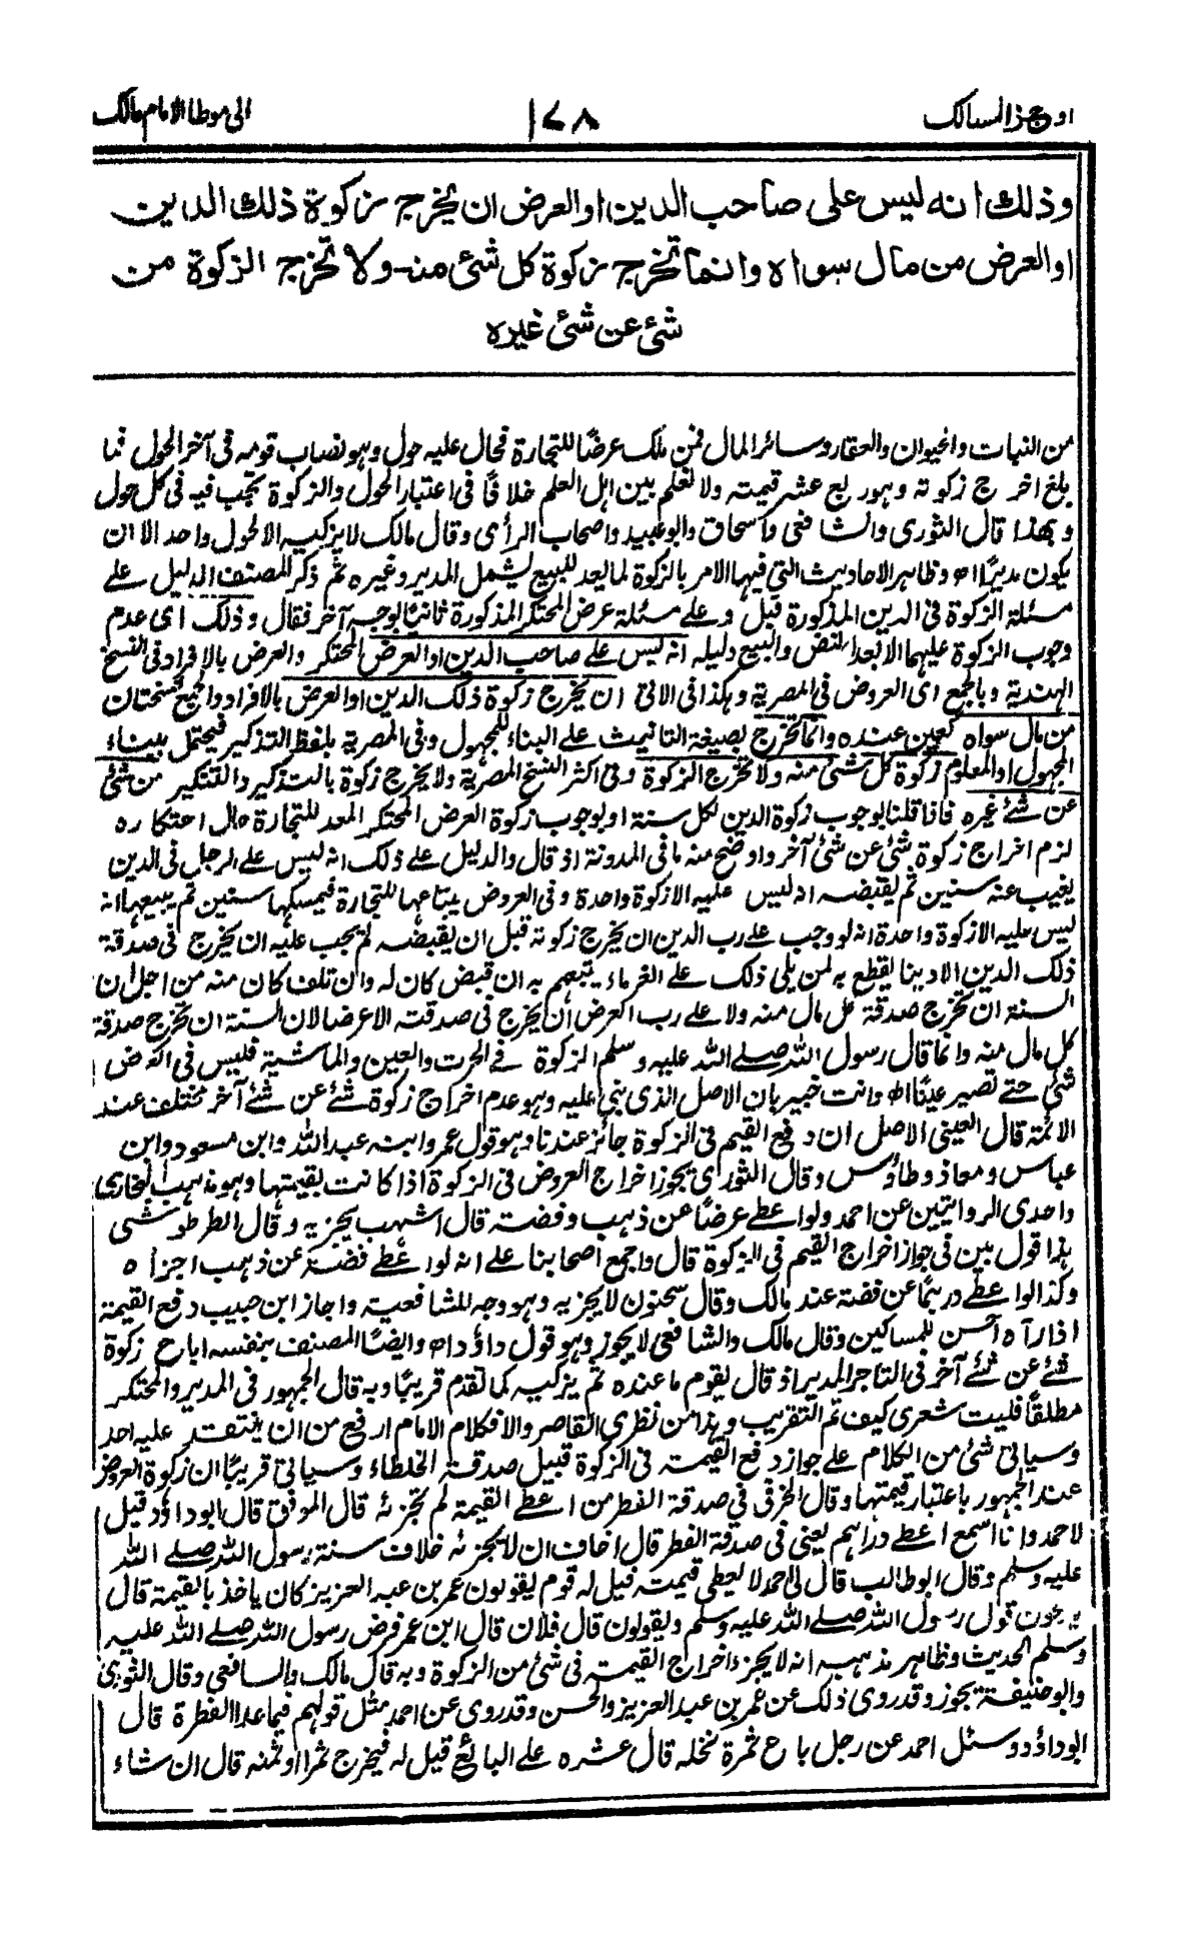 اوجز المسالك
١٧٨
الى موطا الامام مالك
وذلك انه ليس على صاحب الدين او العرض ان يخرج زكوة ذلك الدين
او العرض من مال سواه وانما تخرج زكوة كل شئ منه ولا تخرج الزكوة من
شئ عن شئ غيره
من النبات والحيوان والعقار وسائر المال فمن ملك عرضًا للتجارة فحال عليه حول وهو نصاب قومه فى آخر الحول فما
بلغ اخرج زكوته وهو ربع عشر قيمته ولا نعلم بين اهل العلم خلافًا فى اعتبار الحول والزكوة تجب فيه فى كل حول
وبهذا قال الثورى والشافعى واسحاق وابو عبيد واصحاب الرأى وقال مالك لا يزكيه الا لحول واحد الا ان
يكون مديرًا اه وظاهر الاحاديث التى فيها الامر بالزكوة لما يعد للبيع يشمل المدير وغيره ثم ذكر المصنف الدليل على
مسئلة الزكوة فى الدين المذكورة قبل وعلى مسئلة عرض المحتكر المذكورة ثانيًا بوجه آخر فقال وذلك اى عدم
وجوب الزكوة عليهما الا بعد النض والبيع دليله انه ليس على صاحب الدين او العرض المحتكر والعرض بالافراد فى النسخ
الهندية وبالجمع اى العروض فى المصرية وهكذا فى الآتى ان يخرج زكوة ذلك الدين او العرض بالافراد والجمع نسختان
من مال سواه كعين عنده وانما تخرج بصيغة التانيث على البناء للمجهول وفى المصرية بلفظ التذكير فيحتمل ببناء
المجهول او المعلوم زكوة كل شئ منه ولا تخرج الزكوة وفى اكثر النسخ المصرية ولا يخرج زكوة بالتذكير والتنكير من شئ
عن شئ غيره فاذا قلنا بوجوب زكوة الدين لكل سنة او بوجوب زكوة العرض المحتكر المعد للتجارة حال احتكاره
لزم اخراج زكوة شئ عن شئ آخر واوضح منه ما فى المدونة اذ قال والدليل على ذلك انه ليس على الرجل فى الدين
يغيب عنه سنين ثم يقبضه انه ليس عليه الا زكوة واحدة وفى العروض يبتاعها للتجارة فيمسكها سنين ثم يبيعها انه
ليس عليه الا زكوة واحدة انه لو وجب على رب الدين ان يخرج زكوته قبل ان يقبضه لم يجب عليه ان يخرج فى صدقة
ذلك الدين الا دينا يقطع به لمن يلى ذلك على الغرماء يتبعهم به ان قبض كان له وان تلف كان منه من اجل ان
السنة ان تخرج صدقة كل مال منه ولا على رب العرض ان يخرج فى صدقته الا عرضا لان السنة ان تخرج صدقة
كل مال منه وانما قال رسول الله صلى الله عليه وسلم الزكوة فى الحرث والعين والماشية فليس فى العرض
شئ حتى تصير عينًا اه وانت خبير بان الاصل الذى بنى عليه وهو عدم اخراج زكوة شئ عن شئ آخر مختلف عند
الائمة قال العينى الاصل ان دفع القيم فى الزكوة جائز عندنا وهو قول عمر وابنه عبد الله وابن مسعود وابن
عباس ومعاذ وطاؤس وقال الثورى يجوز اخراج العروض فى الزكوة اذا كانت بقيمتها وهو مذهب البخارى
واحدى الروايتين عن احمد ولو اعطى عرضًا عن ذهب وفضة قال اشهب يجزيه وقال الطرطوشى
هذا قول بين فى جواز اخراج القيم فى الزكوة قال واجمع اصحابنا على انه لو اعطى فضة عن ذهب اجزأه
وكذا لو اعطى درهمًا عن فضة عند مالك وقال سحنون لا يجزيه وهو وجه للشافعية واجاز ابن حبيب دفع القيمة
اذا رآه احسن للمساكين وقال مالك والشافعى لا يجوز وهو قول داؤد اه وايضًا المصنف بنفسه اباح زكوة
شئ عن شئ آخر فى التاجر المدير اذ قال يقوم ما عنده ثم يزكيه كما تقدم قريبًا وبه قال الجمهور فى المدير والمحتكر
مطلقًا فليت شعرى كيف تم التقريب وهذا من نظرى القاصر والا فكلام الامام ارفع من ان ينتقد عليه احد
وسياتى شئ من الكلام على جواز دفع القيمة فى الزكوة قبيل صدقة الخلطاء وسياتى قريبًا ان زكوة العروض
عند الجمهور باعتبار قيمتها وقال الخرقى فى صدقة الفطر من اعطى القيمة لم تجزئه قال الموفق قال ابو داؤد قيل
لاحمد وانا اسمع اعطى دراهم يعنى فى صدقة الفطر قال اخاف ان لا يجزئه خلاف سنة رسول الله صلى الله
عليه وسلم وقال ابو طالب قال لى احمد لا يعطى قيمته قيل له قوم يقولون عمر بن عبد العزيز كان ياخذ بالقيمة قال
يدعون قول رسول الله صلى الله عليه وسلم ويقولون قال فلان قال ابن عمر فرض رسول الله صلى الله عليه
وسلم الحديث وظاهر مذهبه انه لا يجزء اخراج القيمة فى شئ من الزكوة وبه قال مالك والشافعى وقال الثورى
وابو حنيفة يجوز وقد روى ذلك عن عمر بن عبد العزيز والحسن وقد روى عن احمد مثل قولهم فيما عدا الفطرة قال
ابو داؤد وسئل احمد عن رجل باع ثمرة نخله قال عشره على البائع قيل له فيخرج ثمرا او ثمنه قال ان شاء